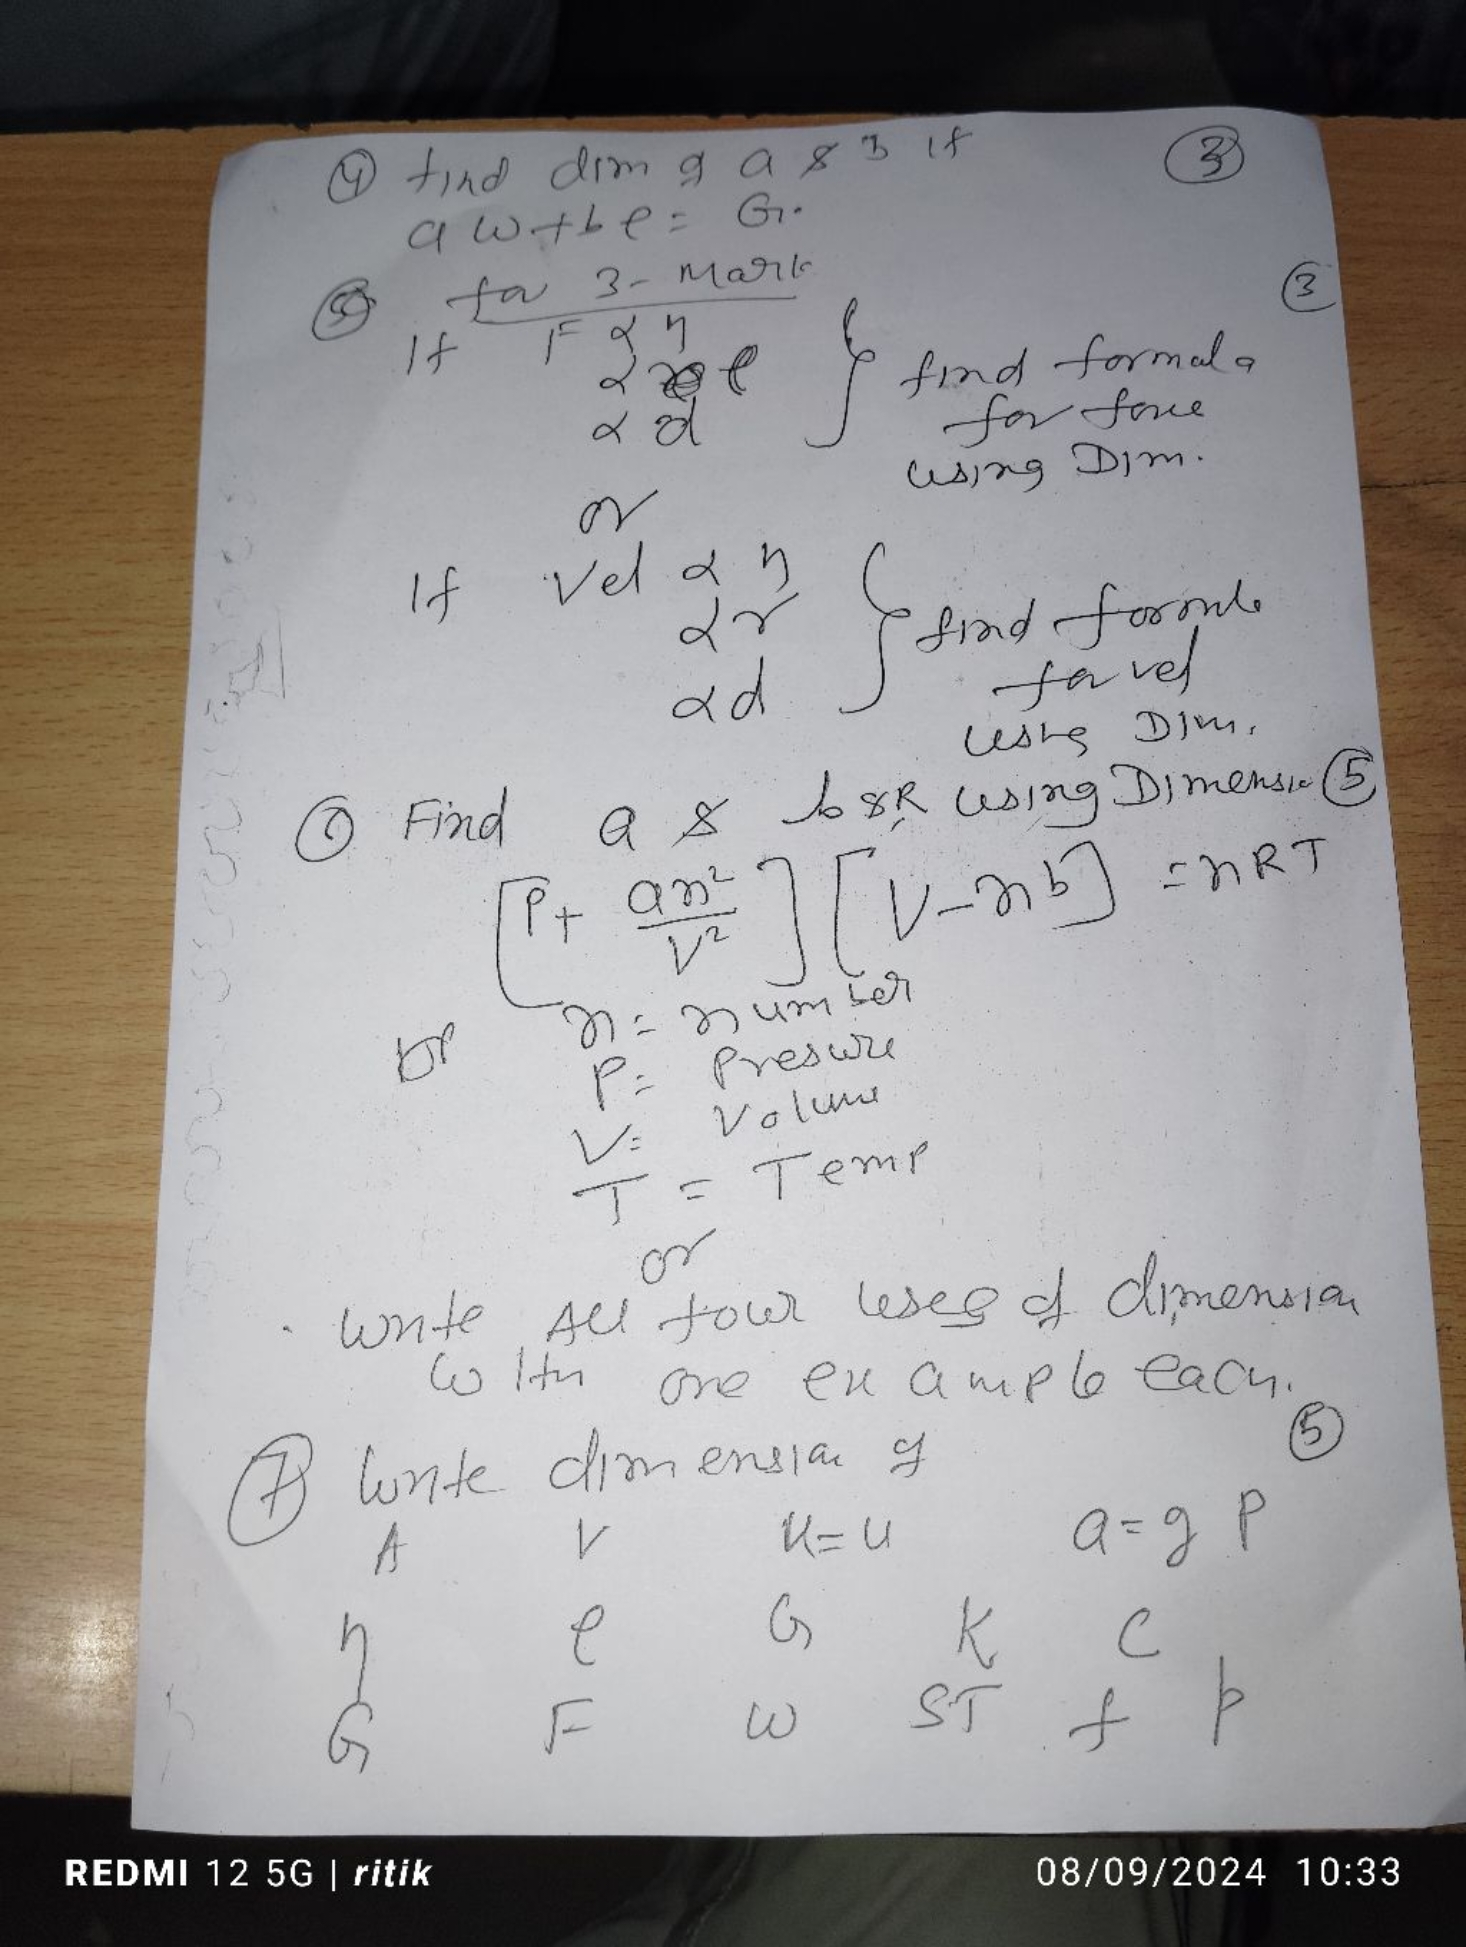 ④ find dim of a & b if ③
a w + b ρ = G.
⑤ for 3-Mark ③
If F α η
α ρ
α d
find formula
for force
using Dim.
or
If Vel α η
α r
α d
find formula
for vel
using Dim.
⑥ Find a & b & R using Dimension ⑤
[P + an²/V²] [V - nb] = nRT
n = number
P = Presure
V = Volume
T = Temp
or
Write All four uses of dimension
with one example each.
⑦ Write dimension of ⑤
A V u = u a = g P
η ρ G K C
G F W ST f p
REDMI 12 5G | ritik
08/09/2024 10:33